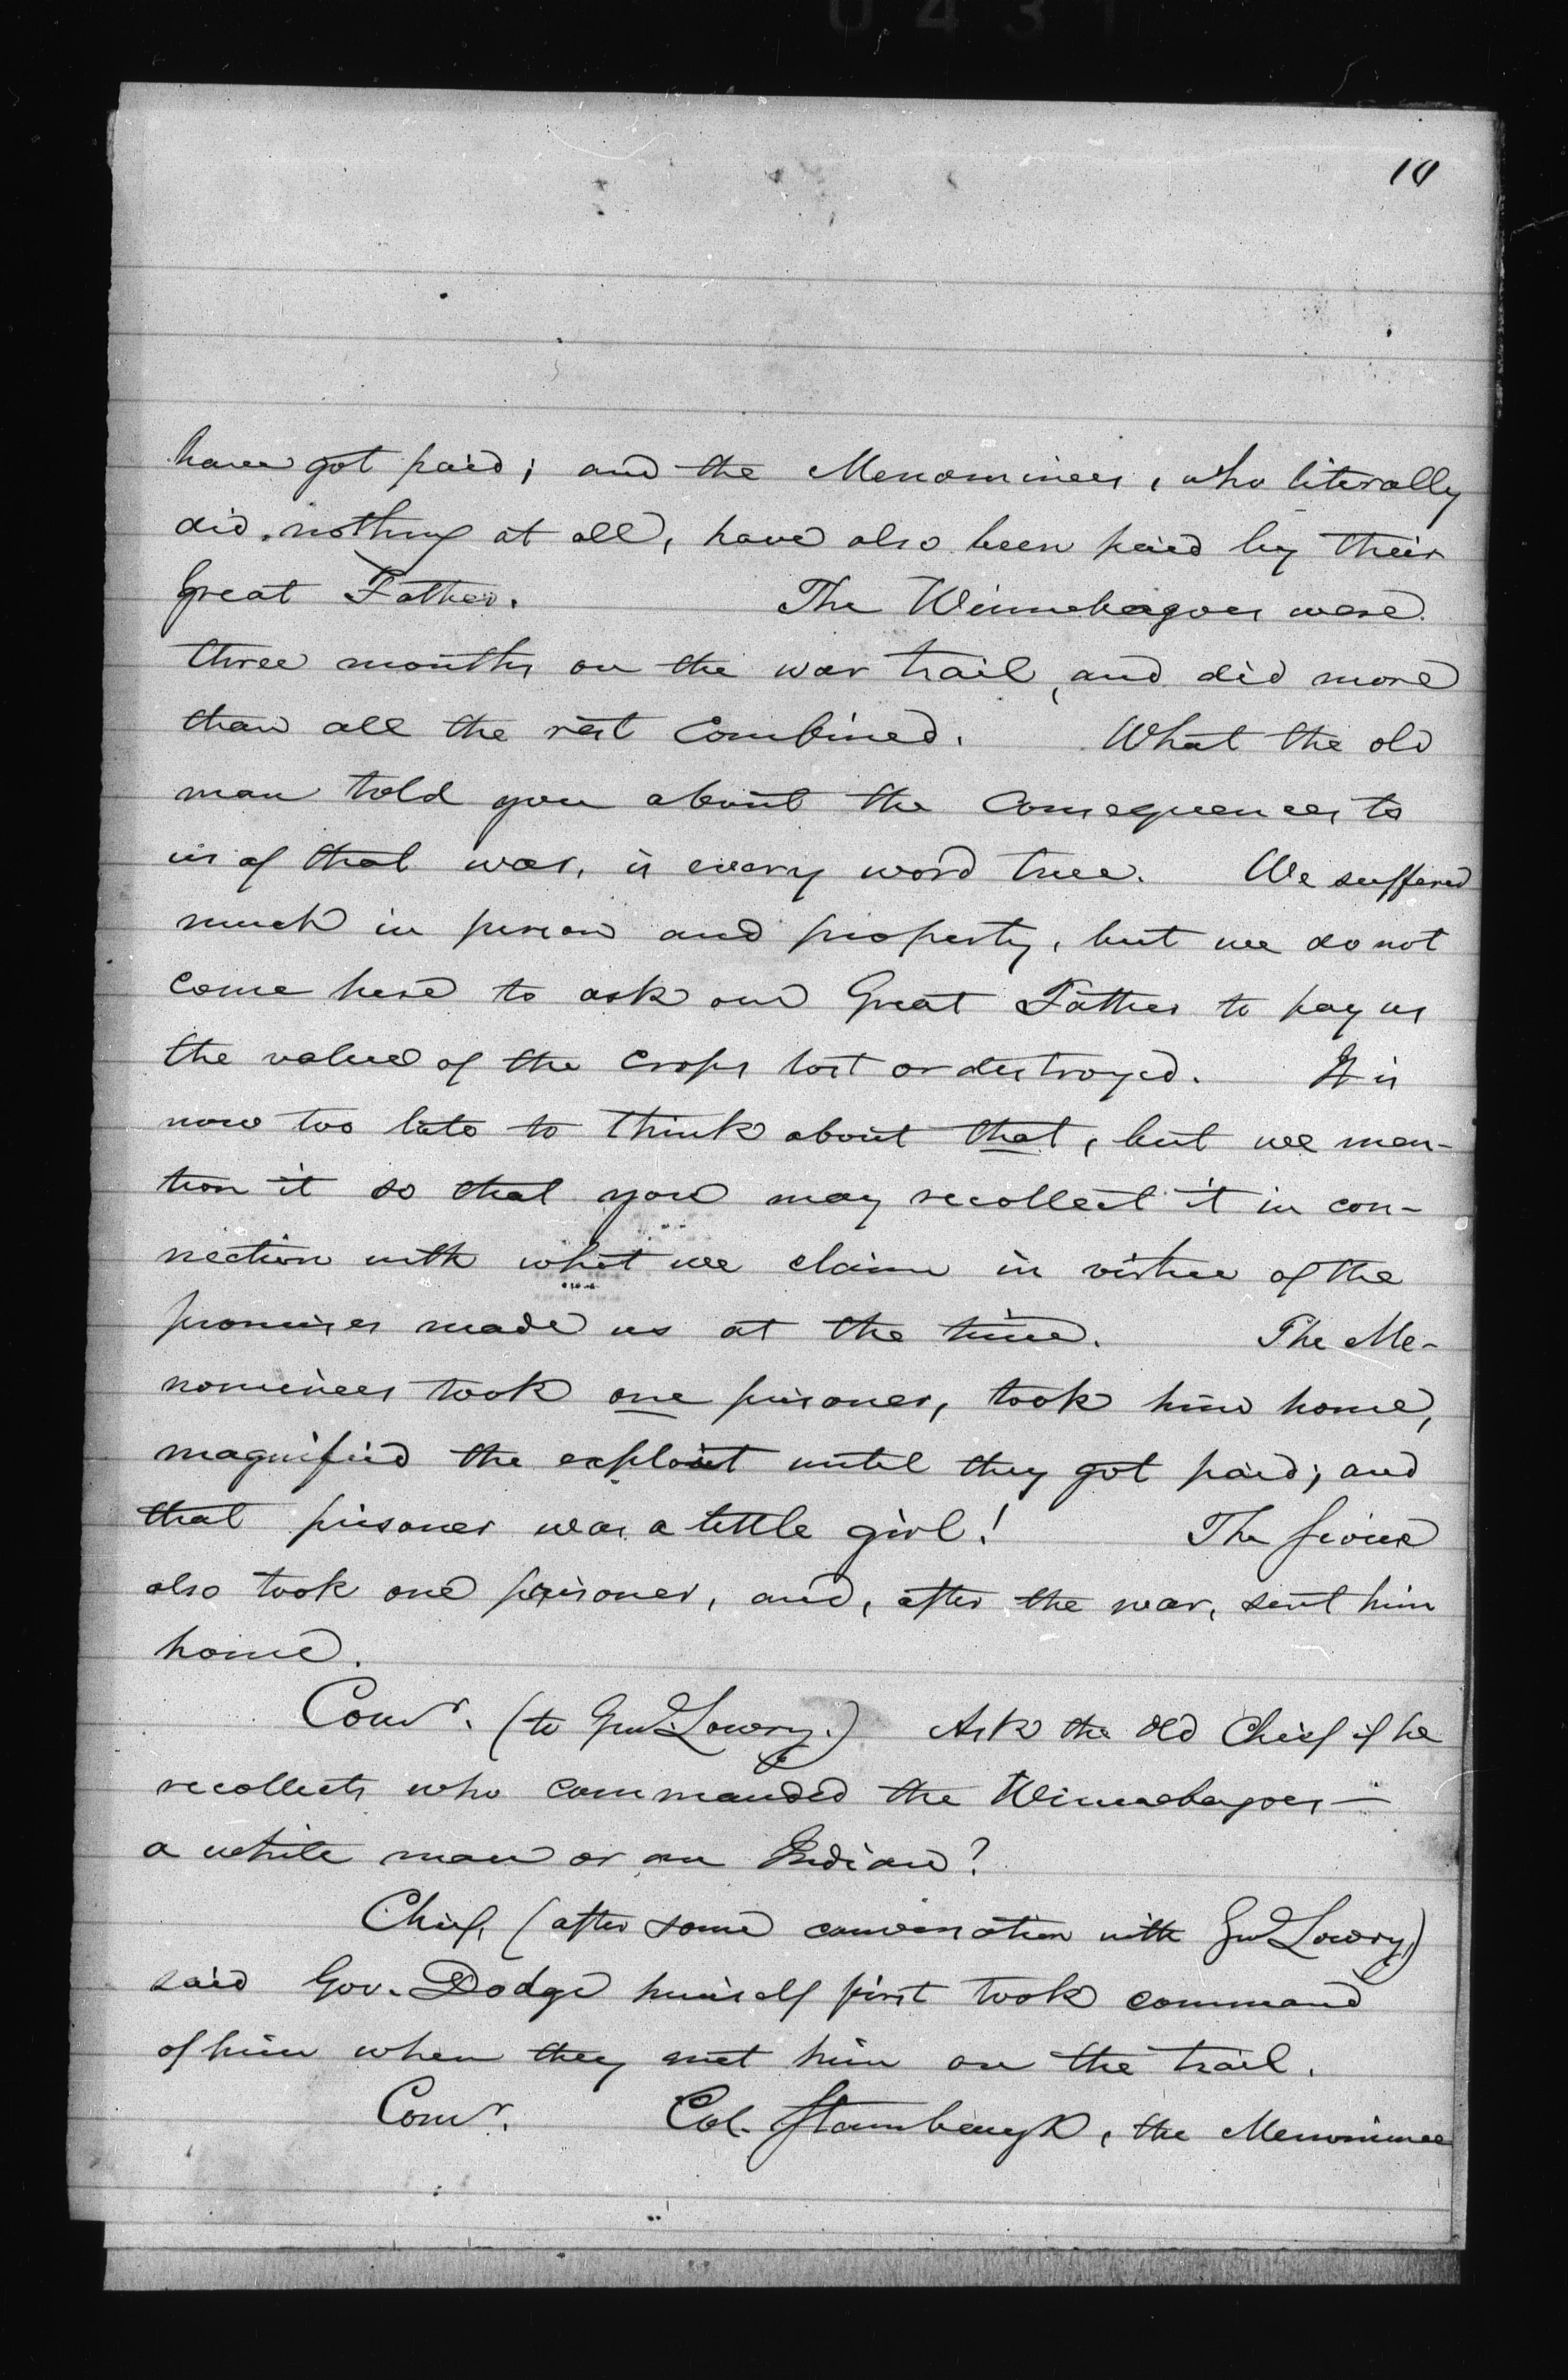 0431
10
have got paid; and the Menominees, who literally
did nothing at all, have also been paid by their
Great Father. The Winnebagoes were
three months on the war trail, and did more
than all the rest combined. What the old
man told you about the consequences to
us of that war, is every word true. We suffered
much in person and property, but we do not
come here to ask our Great Father to pay us
the value of the crops lost or destroyed. It is
now too late to think about that, but we men-
tion it so that you may recollect it in con-
nection with what we claim in virtue of the
promises made us at the time. The Me-
nominees took one prisoner, took him home,
magnified the exploit until they got paid; and
that prisoner was a little girl! The Sioux
also took one prisoner, and, after the war, sent him
home.
Comr. (to Genl. Lowry.) Ask the old Chief if he
recollects who commanded the Winnebagoes—
a white man or an Indian?
Chief, (after some conversation with Genl Lowry,)
said Gov. Dodge himself first took command
of him when they met him on the trail.
Comr. Col. Stambaugh, the Menominee